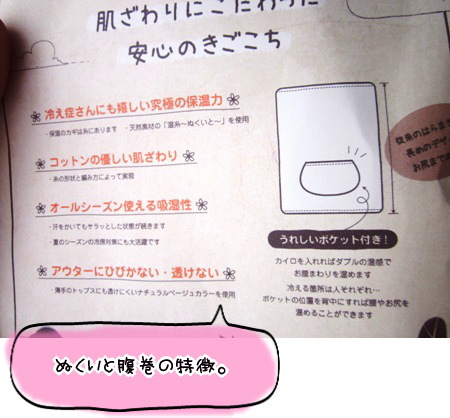 肌ざわりにこだわった
安心のきごこち
冷え症さんにも嬉しい究極の保温力
・保温のカギは糸にあります ・天然素材の「温糸～ぬくいと～」を使用
コットンの優しい肌ざわり
・糸の形状と編み方によって実現
オールシーズン使える吸湿性
・汗をかいてもサラッとした状態が続きます
・夏のシーズンの冷房対策にも大活躍です
アウターにひびかない・透けない
・薄手のトップスにも透けにくいナチュラルベージュカラーを使用
従来のはらま
長めのデザ
お尻まで
うれしいポケット付き！
カイロを入れればダブルの温感で
お腹まわりを温めます
冷える箇所は人それぞれ…
ポケットの位置を背中にすれば腰やお尻を
温めることができます
ぬくいと腹巻の特徴。